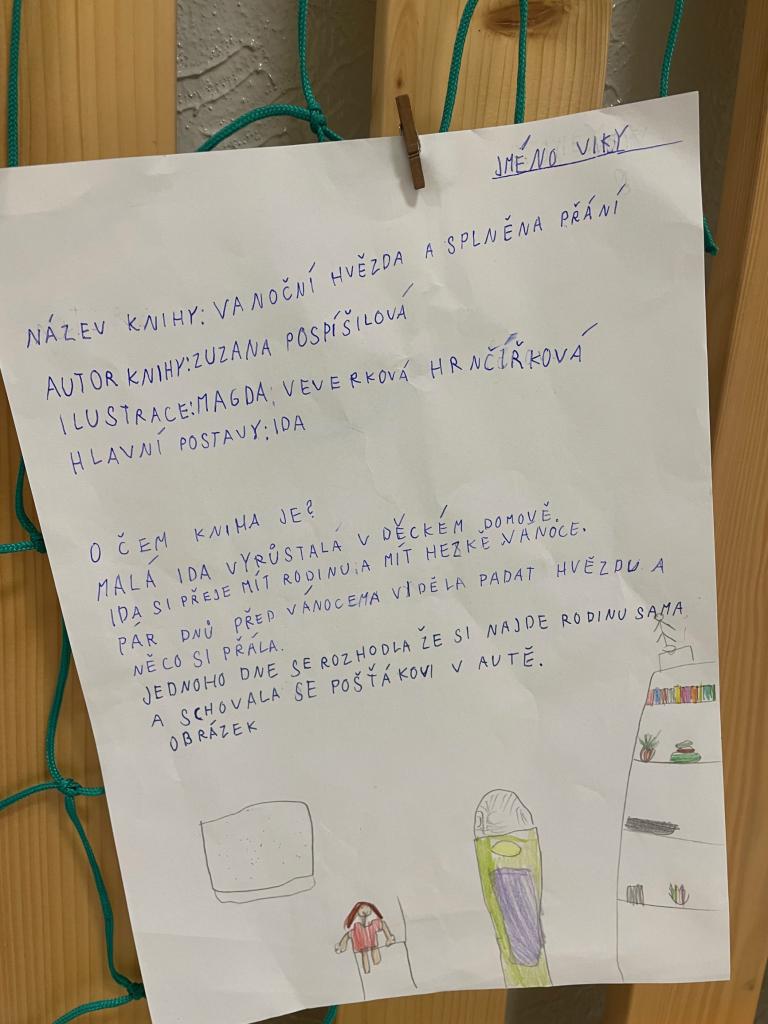 JMÉNO VIKY
NÁZEV KNIHY: VANOČNÍ HVĚZDA A SPLNĚNA PŘÁNÍ
AUTOR KNIHY: ZUZANA POSPÍŠILOVÁ
ILUSTRACE: MAGDA VEVERKOVÁ HRNČÍŘKOVÁ
HLAVNÍ POSTAVY: IDA
O ČEM KNIHA JE?
MALÁ IDA VYRŮSTALÁ V DĚCKÉM DOMOVĚ.
IDA SI PŘEJE MÍT RODINU A MÍT HEZKÉ VÁNOCE.
PÁR DNŮ PŘED VÁNOCEMA VIDĚLA PADAT HVĚZDU A
NĚCO SI PŘÁLA.
JEDNOHO DNE SE ROZHODLA ŽE SI NAJDE RODINU SAMA
A SCHOVALA SE POŠŤÁKOVI V AUTĚ.
OBRÁZEK